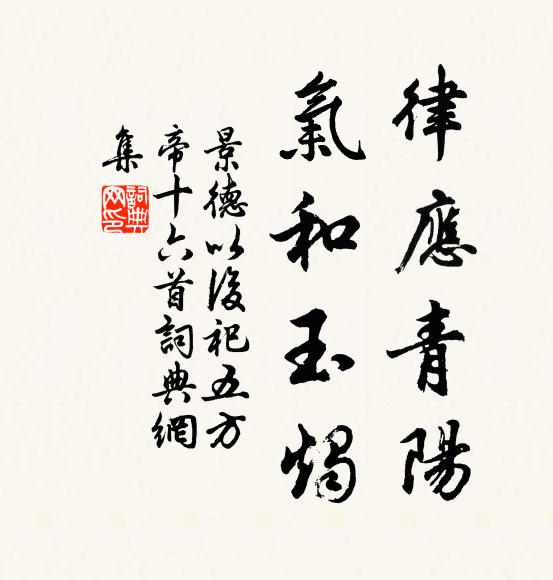 律應青陽
氣和玉燭
景德以後祀五方
帝十六首詞典網
集
詞典網印